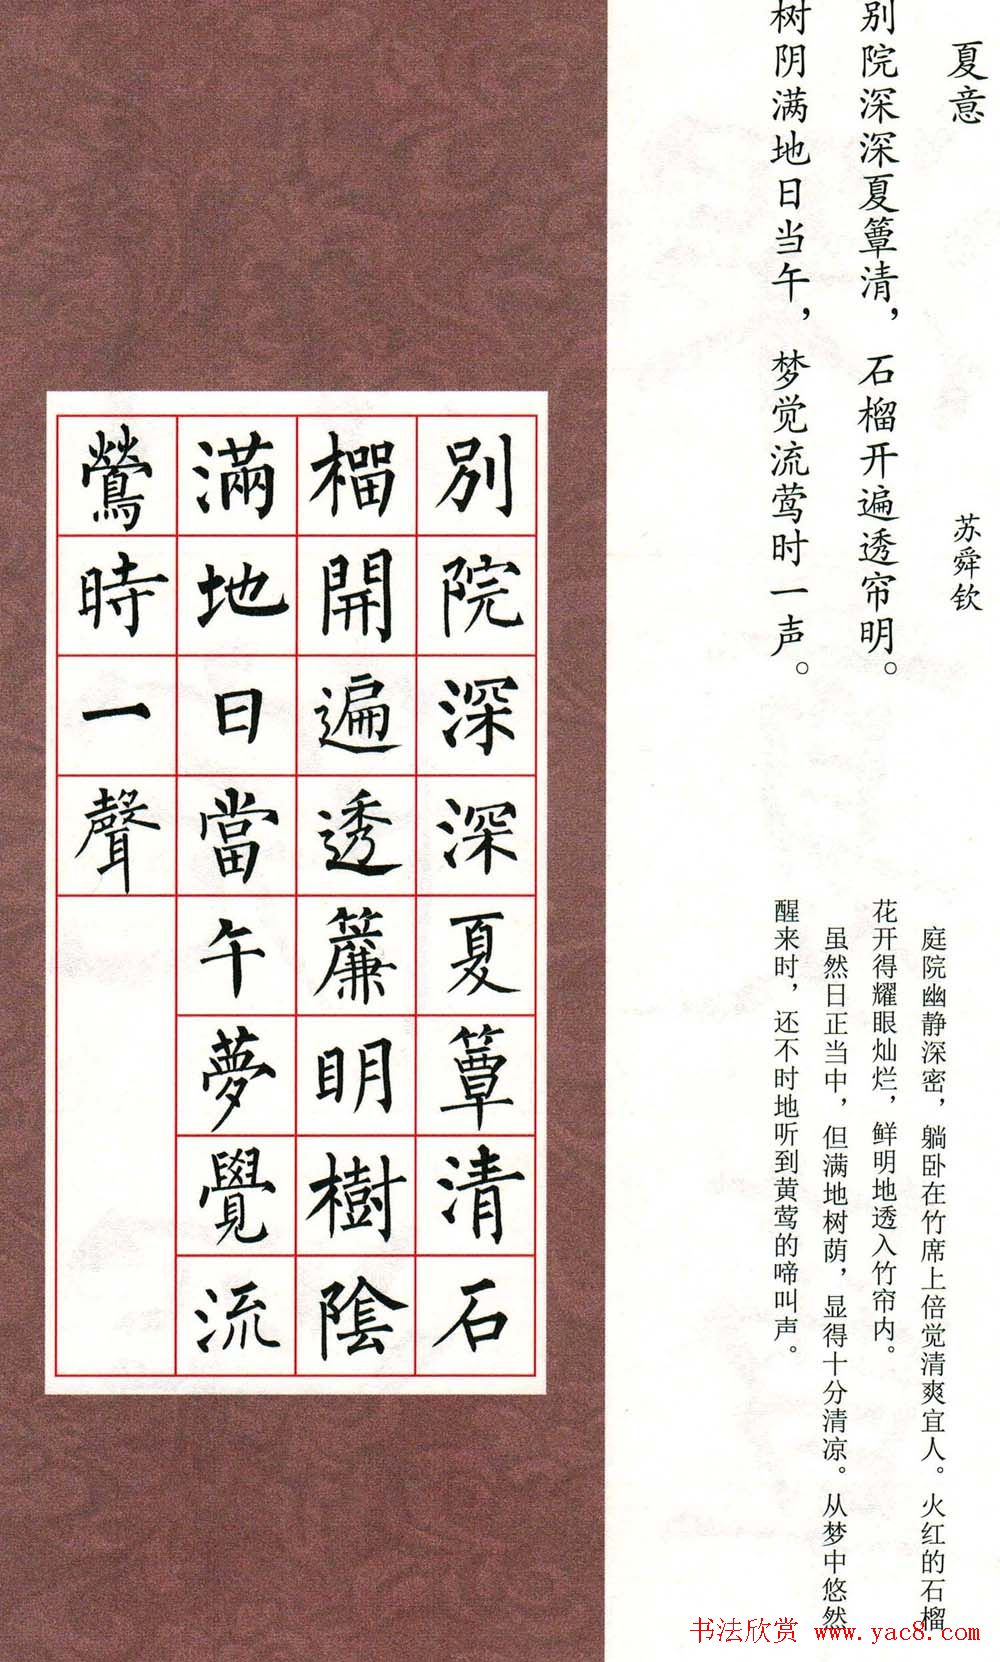 夏意
苏舜钦
别院深深夏簟清，石榴开遍透帘明。
树阴满地日当午，梦觉流莺时一声。
庭院幽静深密，躺卧在竹席上倍觉清爽宜人。火红的石榴
花开得耀眼灿烂，鲜明地透入竹帘内。
虽然日正当中，但满地树荫，显得十分清凉。从梦中悠然
醒来时，还不时地听到黄莺的啼叫声。
別院深深夏簟清石
榴開遍透簾明樹陰
滿地日當午夢覺流
鶯時一聲
书法欣赏 www.yac8.com